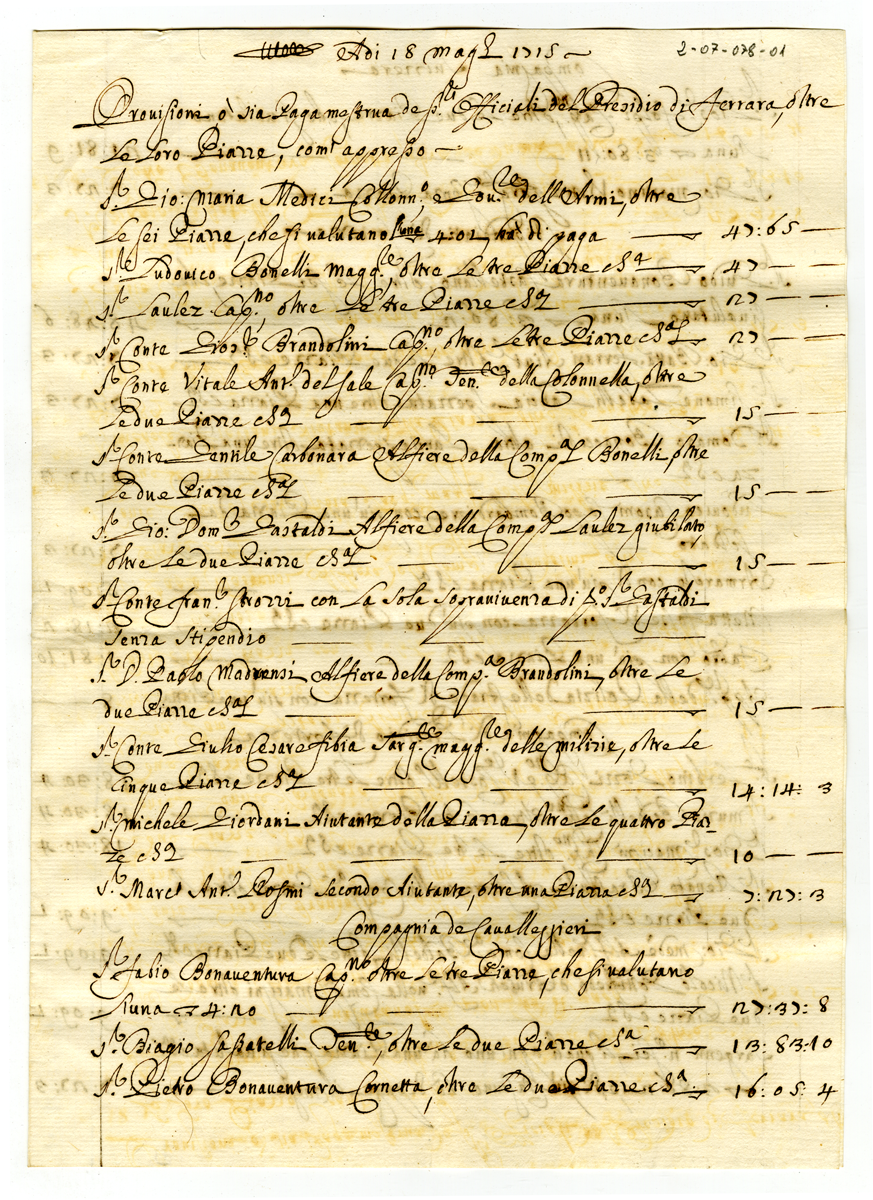 Adi 18 Magg. 1715 2-07-078-01
Provisioni ò sia Paga mestrua de ss.ri Officiali del Presidio di Ferrara, oltre
Le Loro Piazze, com' appresso
S.r Gio: Maria Medici Collonn.o, e Gov.re dell'Armi, oltre
Le sei Piazze, che si valutano l'una 4:02, ha di paga 47:65
S.r Ludovico Bonelli Magg.re oltre Le tre Piazze 47
S.r Laulez Cap.no oltre Le tre Piazze 27
S.r Conte Gios.e Brandolini Cap.no, oltre Le tre Piazze 27
S.r Conte Vitale Ant.o del Sale Cap.no Ten.te della Colonnella, oltre
Le due Piazze 15
S.r Conte Gentile Carbonara Alfiere della Comp.a Bonelli, oltre
Le due Piazze 15
S.r Gio: Dom.o Gastaldi Alfiere della Comp.a Laulez giubilato,
oltre Le due Piazze 15
S.r Conte Fran.o Strozzi con La sola sopravivenza di d.o S.r Gastaldi
senza stipendio
S.r D. Paolo Alfiere della Comp.a Brandolini, oltre Le
due Piazze 15
S.r Conte Giulio Cesare Fibia Sarg.te Magg.re delle milizie, oltre Le
Cinque Piazze 14:14: 3
S.r Michele Giordani Aiutante della Piazza, oltre Le quattro Piaz-
ze 10
S.r Marc' Ant.o Rosmi secondo Aiutante, oltre una Piazza 7:27:3
Compagnia de Cavalleggieri
S.r Fabio Bonaventura Cap.no oltre Le tre Piazze, che si valutano
l'una 4:20 27:37:8
S.r Biagio Sassatelli Ten.te, oltre Le due Piazze 13:83:10
S.r Pietro Bonaventura Cornetta, oltre Le due Piazze 16:05:4